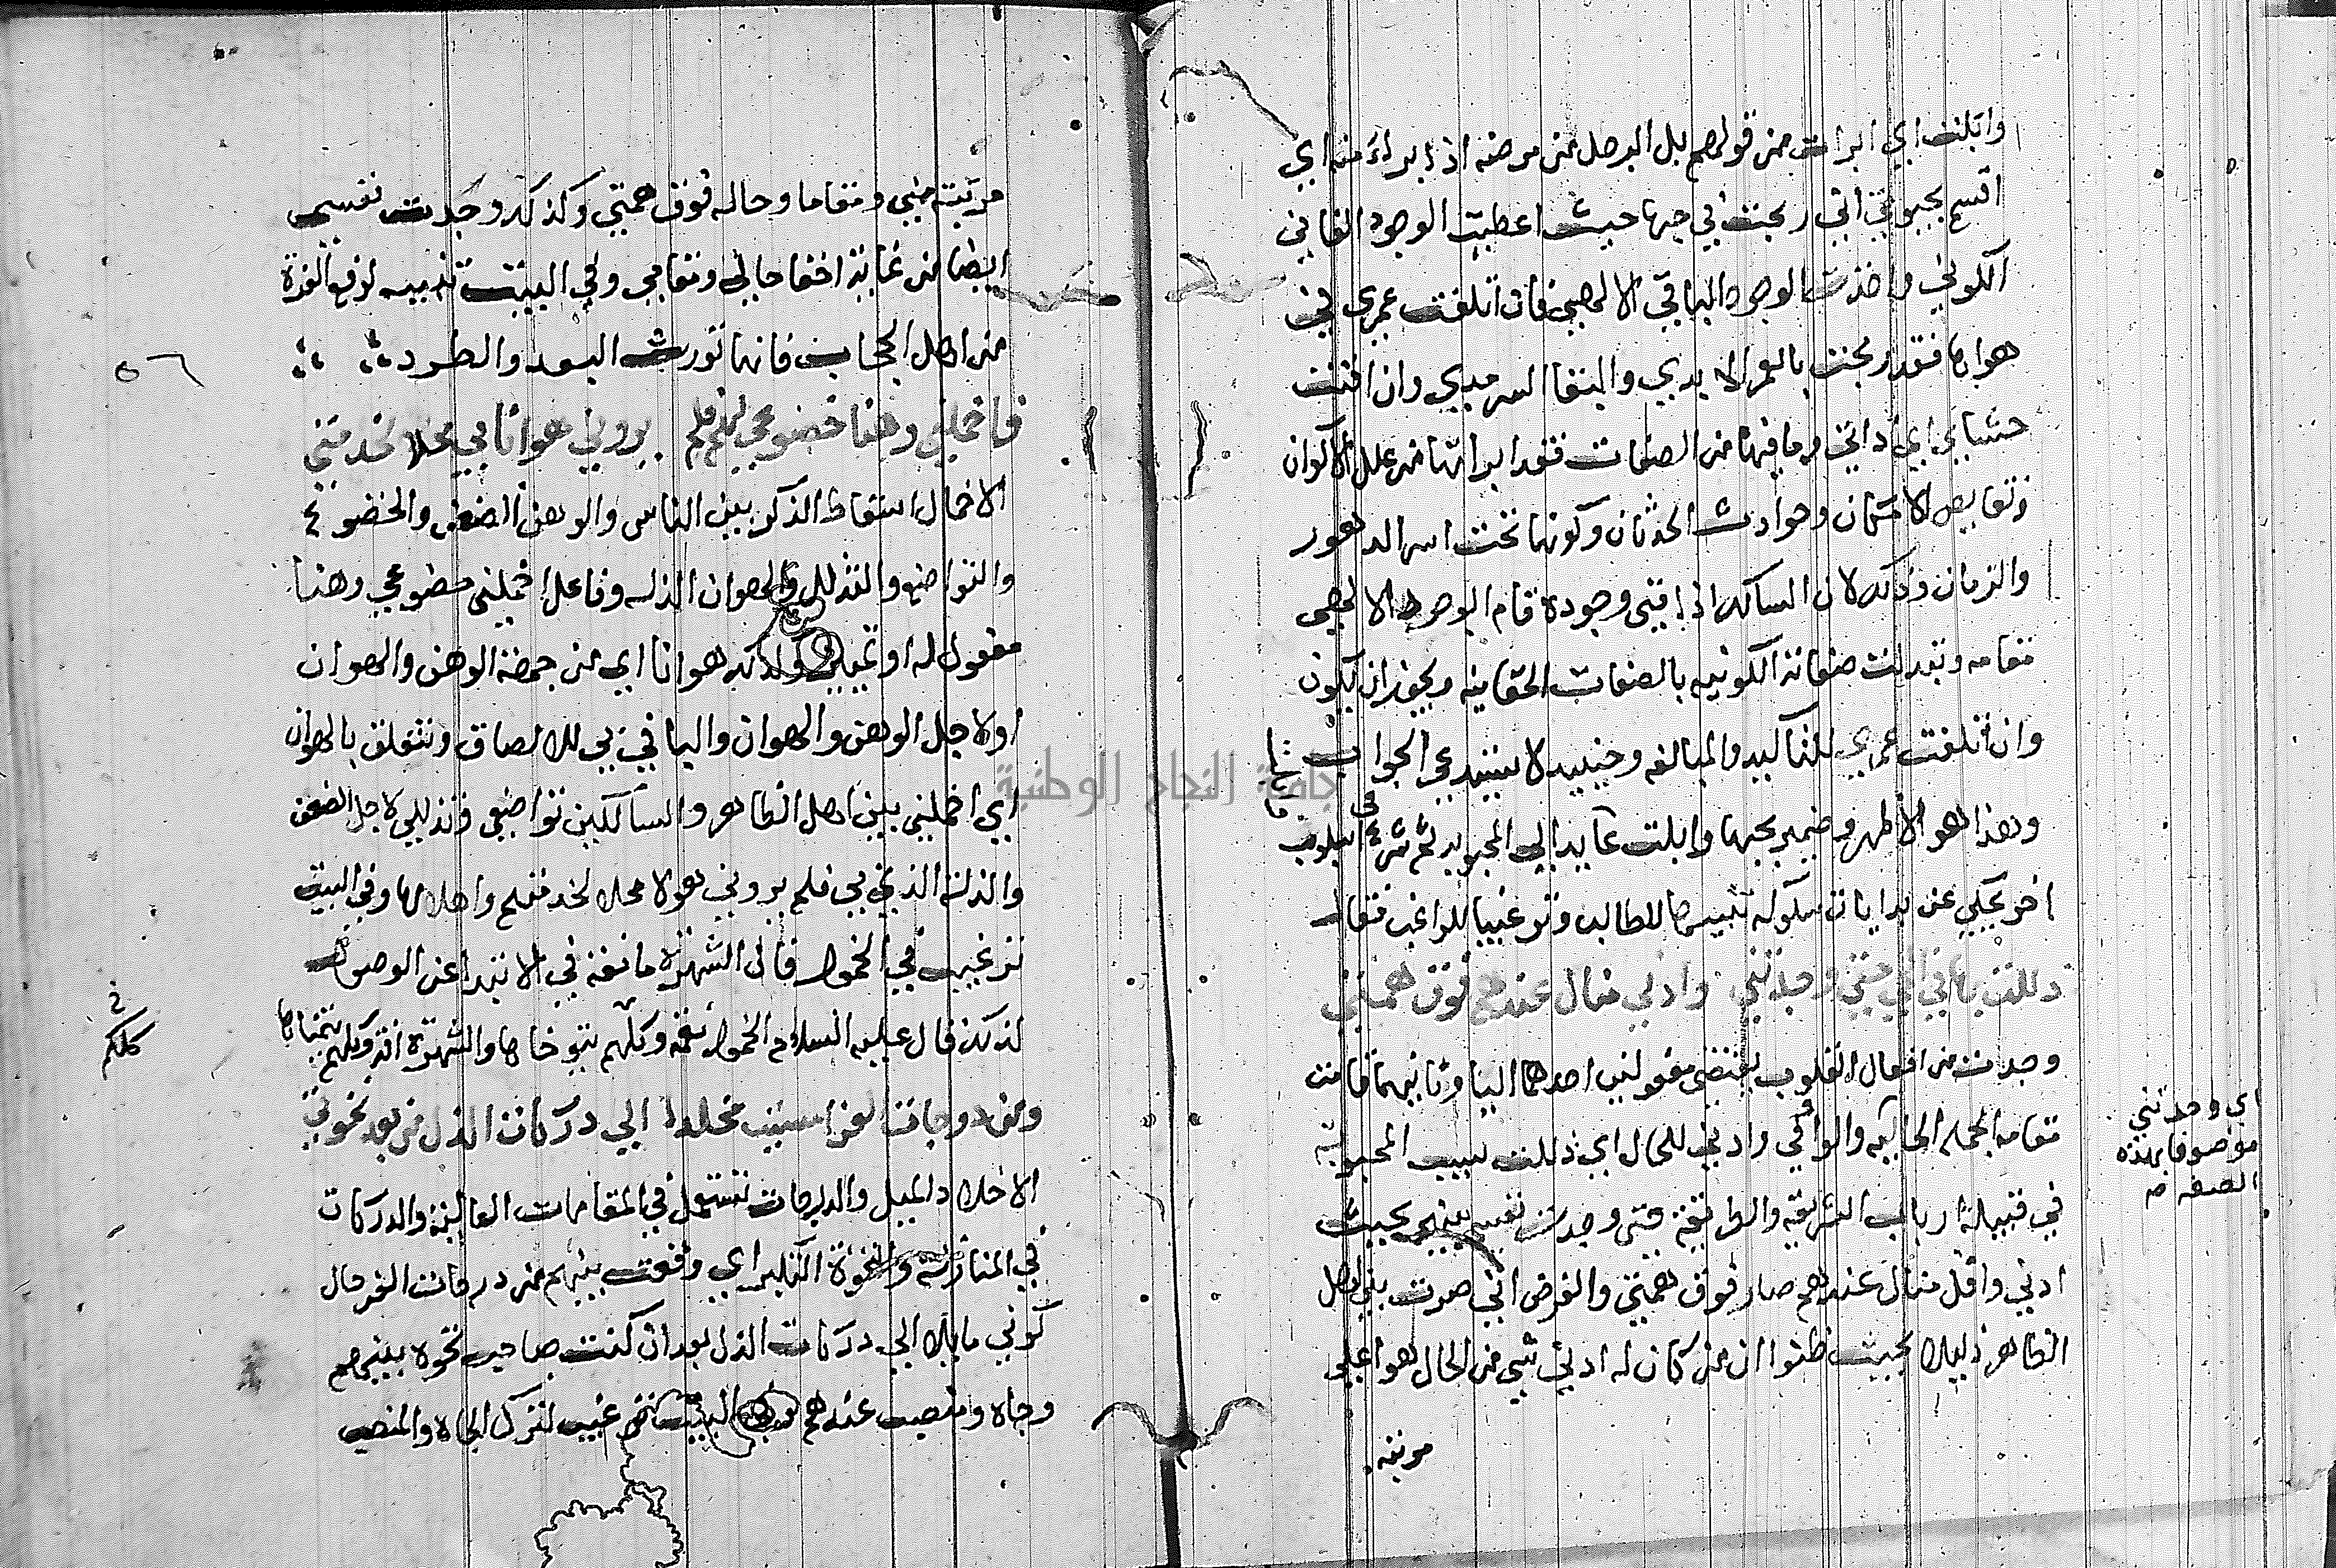 وابلت اي ابرات من قولهم بل الرجل من مرضه اذا براء منه اي
اقسم بحبوبتي اني ربحت في حبها حيث اعطيت الوجود الفاني
الكوني واخذت الوجود الباقي الالهي فان اتلفت عمري في
هواها فقد ربحت بالعمر الابدي والبقا السرمدي وان افنت
حشاي اي ذاتي وما فيها من الصفات فقد ابراتها من علل الاكوان
ونقايص الامكان وحوادث الحدثان وكونها تحت اسر الدهور
والزمان وذلك لان السالك اذا فني وجوده قام الوجود الالهي
مقامه وتبدلت صفاته الكونيه بالصفات الحقانيه ويجوز ان يكون
وان اتلفت عمري للتاكيد والمبالغه وحينيد لا يستدعي الجواب
وهذا هو الاظهر وضمير بحبها وابلت عايد الي المحبوبه ثم شرع في اسلوب
اخر يحكي عن بدايات سلوكه تنبيها للطالب وترغيبا للراغب فقال
ذللت بها في الحي حتي وجدتني وادني منال عندهم فوق همتي
وجدت من افعال القلوب يقتضي مفعولين احدهما اليا وثانيهما قامت
مقامه الجمله الحاليه والواو في وادني للحال اي ذللت بسبب المحبوبة
في قبيلة ارباب الشريعه والطريقة حتي وجدت نفسي بينهم بحيث
ادني واقل منال عندهم صار فوق همتي والغرض اني صرت بين اهل
الظاهر ذليلا بحيث ظنوا ان من كان له ادني شي من الحال هو اعلي
مرتبه
اي وجدتني
موصوفا بهذه
الصفه
مرتبة مني ومقاما وحاله فوق همتي وكذلك وجدت نفسي
ايضا من غاية اخفا حالي ومقامي وفي البيت تنبيه لرفع النخوة
من اهل الحجاب فانها تورث البعد والطرد
فاخملني وهنا خضوعي لهم فلم يروني هوانا بي محلا لخدمتي
الاخمال اسقاط الذكر بين الناس والوهن الضعف والخضوع
والتواضع والتذلل والهوان الذله وفاعل اخملني خضوعي وهنا
مفعول له او تمييز وكذلك هوانا اي من جهة الوهن والهوان
او لاجل الوهن والهوان والبا في بي للالصاق وتتعلق بالهوان
اي اخملني بين اهل الظاهر والسالكين تواضعي وتذللي لاجل الضعف
والذلة الذي بي فلم يروني هولا محلا لخدمتهم واهلا لها وفي البيت
ترغيب في الخمول فان الشهرة مانعة في الابتدا عن الوصول
لذلك قال عليه السلام الخمول نعمة وكلهم يتوخاها والشهرة افة وكلهم يتمناها
كلكم
ومن درجات العز امسيت مخلدا الي دركات الذل من بعد نخوتي
الاخلاد الميل والدرجات تستعمل في المقامات العالية والدركات
في المنازلة والنخوة التكبر اي وقعت بينهم من درجات العز حال
كوني مايلا الي دركات الذل بعد ان كنت صاحب نخوة بينهم
وجاه ومنصب عندهم وفي البيت ترغيب لترك الجاه والمنصب
٥٦
جامعة النجاح الوطنية